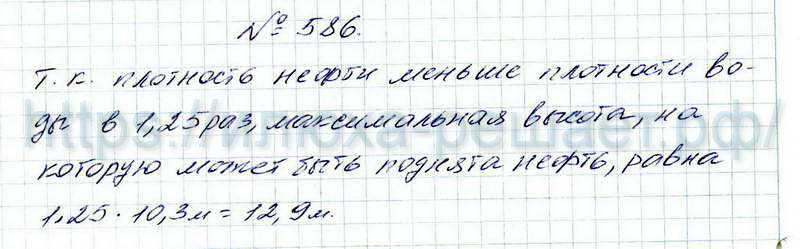 № 586.
т.к. плотность нефти меньше плотности во-
ды в 1,25раз, максимальная высота, на
которую может быть поднята нефть, равна
1,25 · 10,3м = 12,9м.